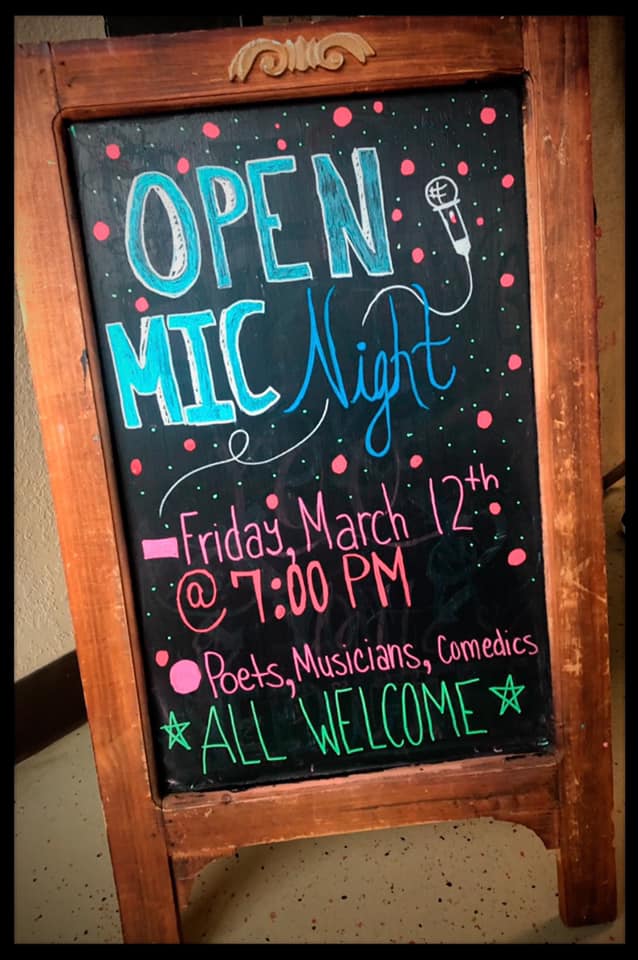 OPEN
MIC Night
Friday, March 12th
@ 7:00 PM
Poets, Musicians, Comedics
ALL WELCOME